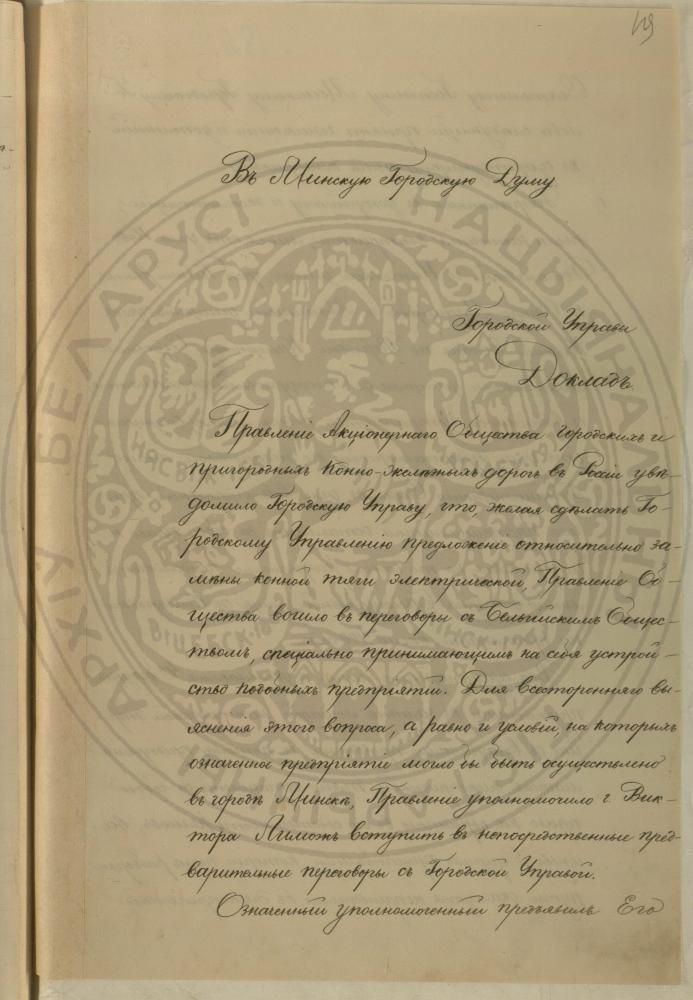 149
Въ Минскую Городскую Думу
Городской Управы
Докладъ.
Правленіе Акціонернаго Общества городскихъ и
пригородныхъ конно-желѣзныхъ дорогъ въ Россіи увѣ-
домило Городскую Управу, что, желая сдѣлать Го-
родскому Управленію предложеніе относительно за-
мѣны конной тяги электрической, Правленіе Об-
щества вошло въ переговоры съ Бельгійскимъ Общес-
твомъ, спеціально принимающимъ на себя устрой-
ство подобныхъ предпріятій. Для всесторонняго вы-
ясненія этого вопроса, а равно и условій, на которыхъ
означенное предпріятіе могло бы быть осуществлено
въ городѣ Минскѣ, Правленіе уполномочило г. Вик-
тора Лиможъ вступить въ непосредственные пред-
варительные переговоры съ Городской Управой.
Означенный уполномоченный предъявилъ Его
НАЦЫЯНАЛЬНЫ
АРХІЎ БЕЛАРУСІ